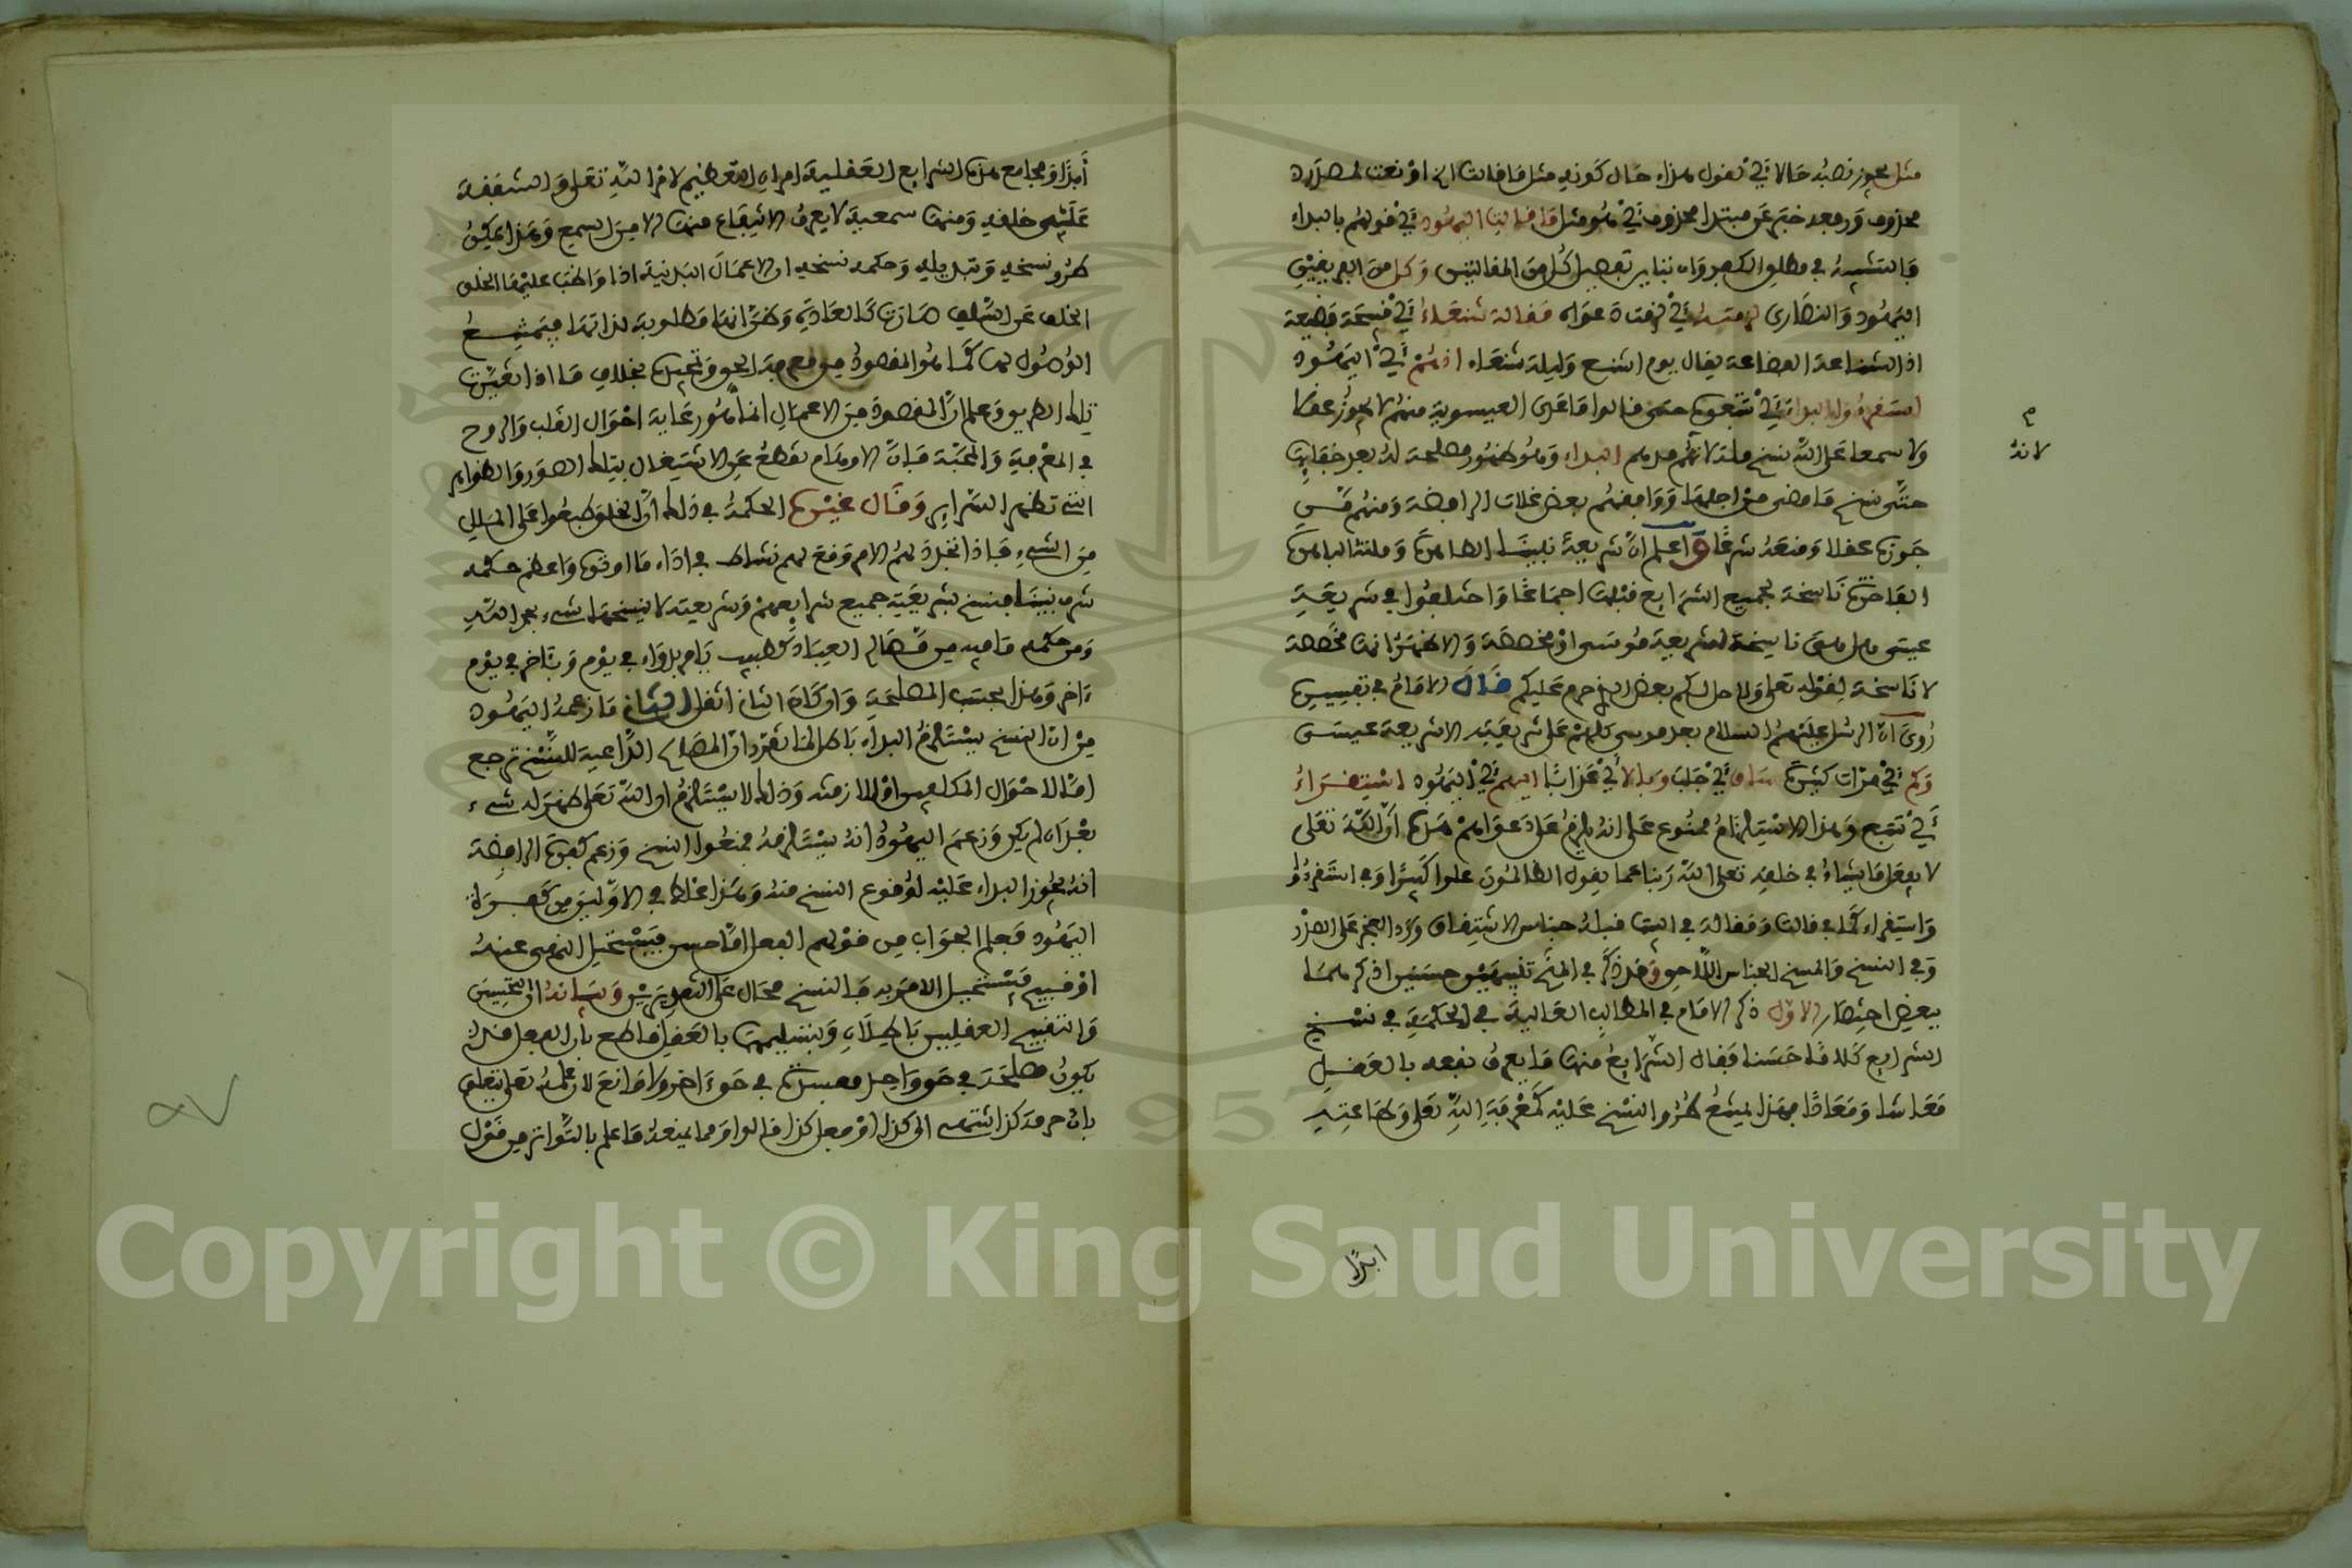 مثل يجوز نصبه حالا أي نقول هذا حال كونه مثل ما قالت الخ أو نعت لمصدر
محذوف ورفعه خبر عن مبتدأ محذوف أي هو مثل ما قالت اليهود أي قولهم بالبداء
فالتشبيه في مطلق الكفر وان تباين تفصيل كل من المقالتين وكل من الفريقين
اليهود والنصارى لزمته أي لزمت دعواه مقالة شنعاء أي قبيحة فضيعة
اذ الشناعة الفضاعة يقال يوم اشنع وليلة شنعاء اذ هم أي اليهود
استقرءوا البداء أي تتبعوه حتى قالوا ما عدى العيسوية منهم لا يجوز عقلا
ولا سمعا على الله نسخ ملة لانهم مدهم البداء وهو ظهور مصلحة له بعد خفائها
لانه
حتى نسخ ما مضى من اجلها ووافقهم بعض غلات الرافضة ومنهم من
جوزه عقلا ومنعه شرعا واعلم ان شريعة نبينا الطاهرة وملته الباهرة
الفاخرة ناسخة لجميع الشرايع قبلها اجماعا واختلفوا في شريعة
عيسى هل هي ناسخة لشريعة موسى أو مخصصة والاظهر انها مخصصة
لا ناسخة لقوله تعلى ولاحل لكم بعض الذي حرم عليكم قال الامام في تفسيره
روي ان الرسل عليهم السلام بعد موسى كلهم على شريعته الا شريعة عيسى
وكم أي مرات كثيرة ساق أي جلب وبالا أي عذابا اليهم أي اليهود استقراء
أي تتبع وهذا الاستلزام ممنوع على انه يلزم على دعواهم هذه ان الله تعلى
لا يفعل ما يشاء في خلقه تعلى الله ربنا عما يقول الظالمون علوا كبيرا وفي استقرءوا
واستقراء كما في قالت ومقالة في البيت قبله جناس الاشتقاق ورد العجز على الصدر
وفي النسخ والمسخ الجناس اللاحق وقد ذكر في المنح تنبيهين حسنين اذكرهما
ببعض اختصار الاول ذكر الامام في المطالب العالية في الحكمة في نسخ
الشرايع كلاما حسنا فقال الشرايع منها ما يعرف نفعه بالعقل
معاشا ومعادا فهذا يمتنع طروا النسخ عليه كمعرفة الله تعلى وطاعته
ابدا
أبدا ومجامع هذه الشرايع العقلية امران التعظيم لامر الله تعلى والشفقة
على خلقه ومنها سمعية لا يعرف الانتفاع منها الا من السمع وهذا يمكن
طرو نسخه وتبديله وحكمة نسخه ان الاعمال البدنية اذا واظب عليها الخلف
الخلف عن السلف صارت كالعادة وظن انها مطلوبة لذاتها فيمتنع
الوصول بها لما هو المقصود من معرفة الحق وتمجيده بخلاف ما اذا تغيرت
تلك الطريق وعلم ان المقصود من الاعمال انما هو رعاية احوال القلب والروح
في المعرفة والمحبة فان الاوهام تقطع عن الاشتغال بتلك الصور والظواهر
التي تظهر السراير وقال غيره الحكمة في ذلك ان الخلق طبعوا على الملل
من الشيء فاذا تجدد لهم الامر وقع لهم نشاط في اداء ما اوثره واعظم حكمة
شرف نبينا فنسخ بشريعته جميع شرايعهم وشريعته لا ينسخها شيء بحمد الله
ومن حكمه ما فيه من مصالح العباد كطبيب يامر بدواء في يوم وبآخر في يوم
ءاخر وهذا بحسب المصلحة وان كان الثاني اثقل الثاني ما زعمه اليهود
من ان النسخ يستلزم البداء باطل لما تقرر ان المصالح الداعية للنسخ ترجع
اما لاحوال المكلفين او للازمنة وذلك لا يستلزم ان الله تعلى ظهر له شيء
بعد ان لم يكن وزعم اليهود انه يستلزمه فمنعوا النسخ وزعم كفرة الرافضة
انه يجوز البداء عليه لوقوع النسخ منه وهذا غلط في الاولين من كفرة
اليهود فعلم الجواب من قولهم الفعل اما حسن فيستحيل النهي عنه
او قبيح فيستحيل الامر به فالنسخ محال على التقديرين وبيانه ان التحسين
والتقبيح العقليين باطلان وبتسليمهما فالعقل قاطع بان الفعل قد
يكون مصلحة في حق واحد مفسدة في حق ءاخر ولا مانع لان علمه تعلى يتعلق
بان حرمة كذا تنتهي الى كذا او فعل كذا قالوا ومما يمنعه ما علم بالتواتر من قول